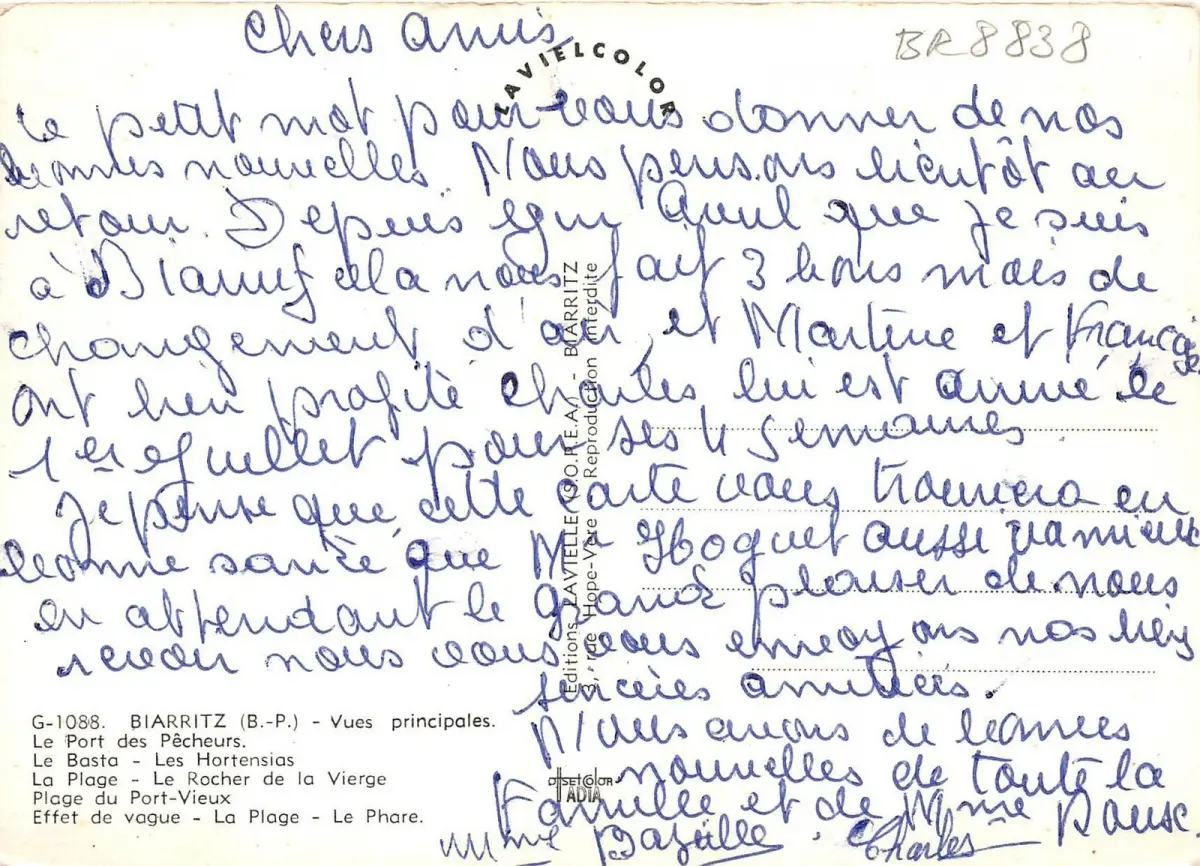 Chers Amis
BR 8838
LAVIELCOLOR
Ce petit mot pour vous donner de nos
bonnes nouvelles. Nous pensons bientôt au
retour. Depuis Avril que je suis
à cela nous fait 3 bons mois de
changement d'air, et Martine et
ont bien profité Charles lui est arrivé le
1er Juillet pour ses 4 semaines
Je pense que cette carte vous trouvera en
bonne santé que Mr Hoquet aussi va mieux
en attendant le grand plaisir de nous
revoir nous vous envoyons nos
sincères amitiés.
Nous avons de bonnes
nouvelles de toute la
Famille et de Mme
Mme Bazille. Charles
Editions LAVIELLE (S.O.R.E.A.) - BIARRITZ
3, rue Hope-Vère - Reproduction interdite
G-1088. BIARRITZ (B.-P.) - Vues principales.
Le Port des Pêcheurs.
Le Basta - Les Hortensias
La Plage - Le Rocher de la Vierge
Plage du Port-Vieux
Effet de vague - La Plage - Le Phare.
ADIA